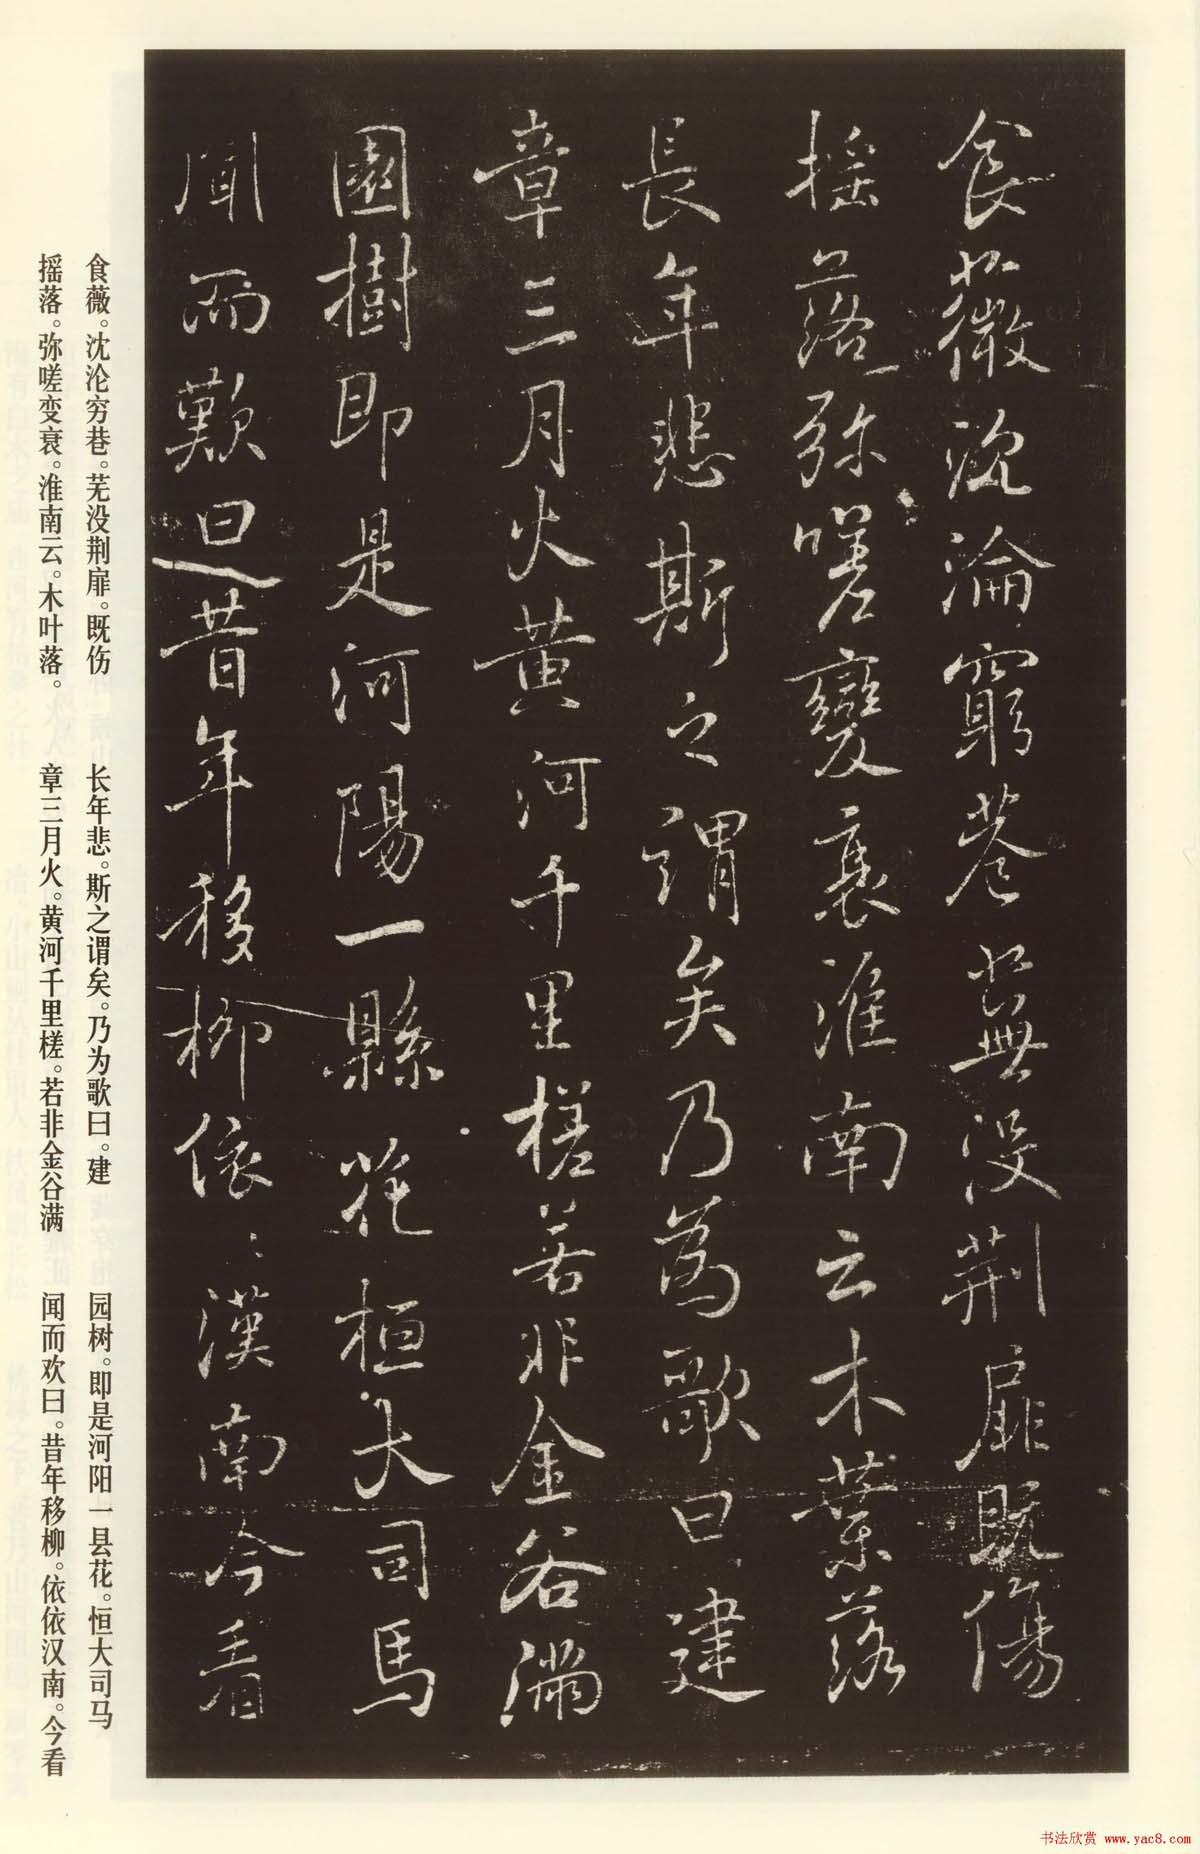 食薇沈淪窮巷蕪沒荆扉既傷
摇落弥嗟變衰淮南云木葉落
長年悲斯之謂矣乃為歌曰建
章三月火黄河千里槎若非金谷滿
園樹即是河陽一縣花桓大司馬
聞而歎曰昔年移柳依〻漢南今看
食薇。沈沦穷巷。芜没荆扉。既伤
摇落。弥嗟变衰。淮南云。木叶落。
长年悲。斯之谓矣。乃为歌曰。建
章三月火。黄河千里槎。若非金谷满
园树。即是河阳一县花。恒大司马
闻而欢曰。昔年移柳。依依汉南。今看
书法欣赏 www.yac8.com